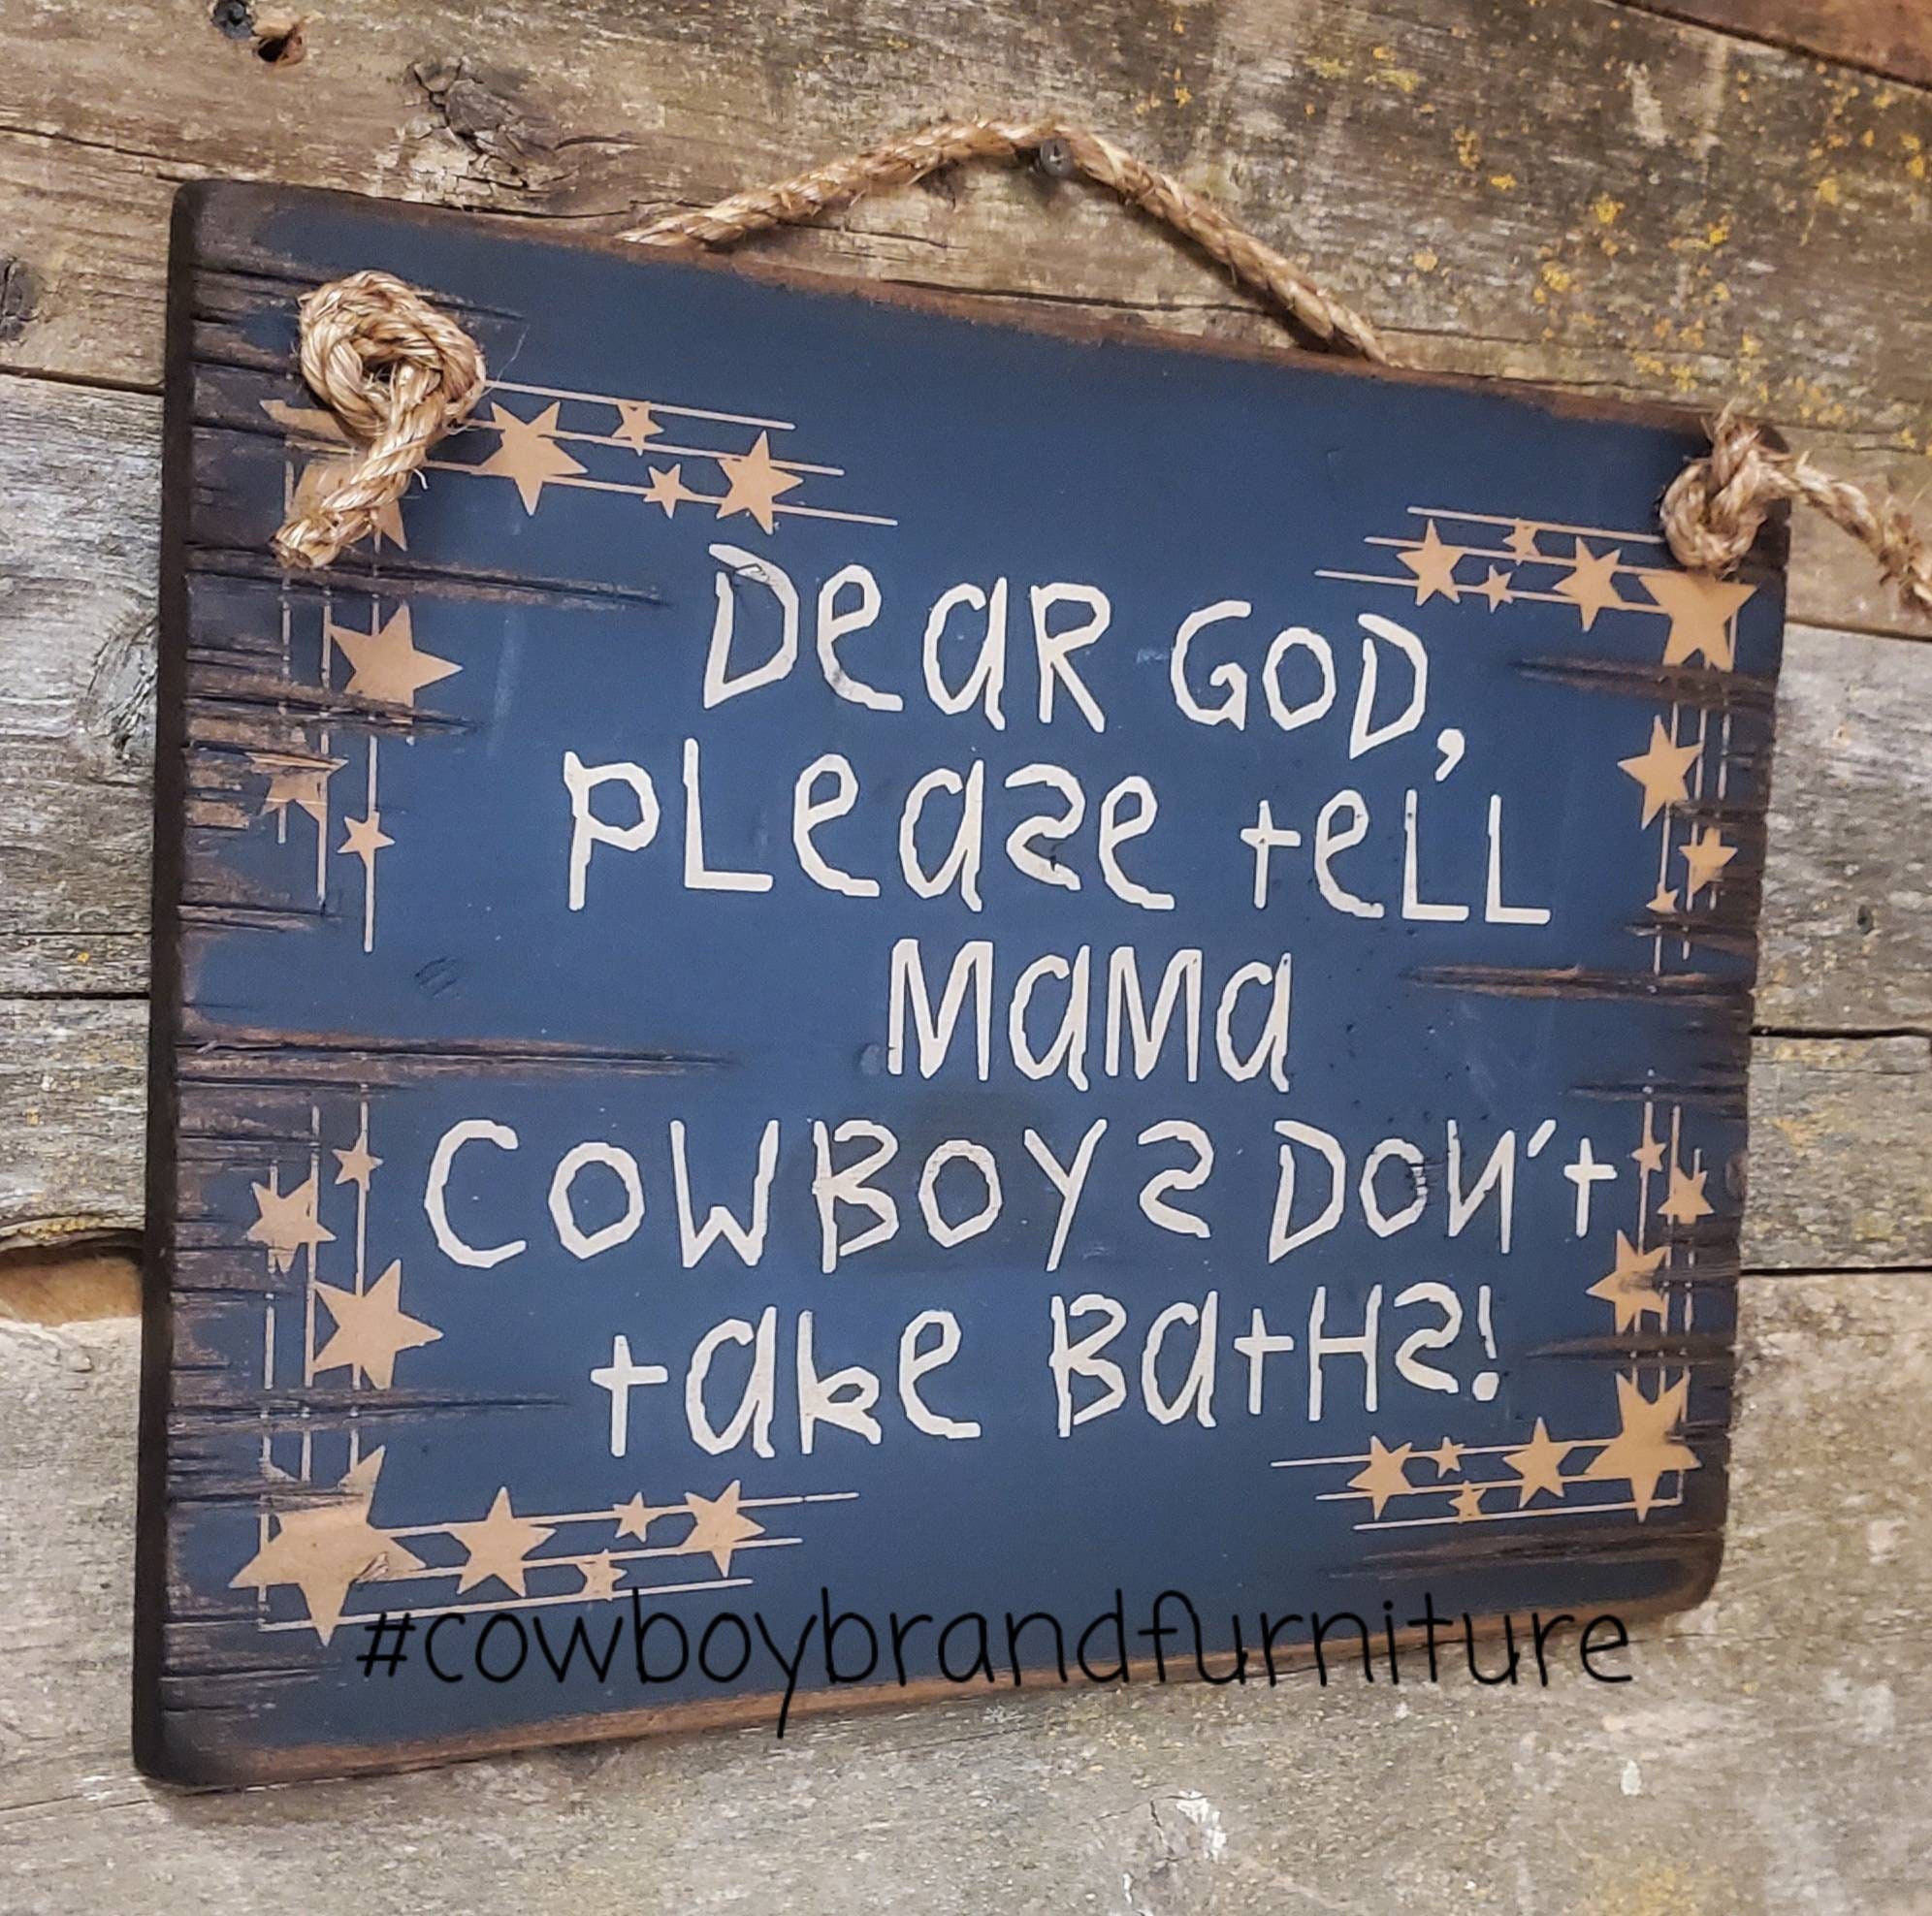 Dear God,
please tell
Mama
Cowboys Don't
take Baths!
#cowboybrandfurniture